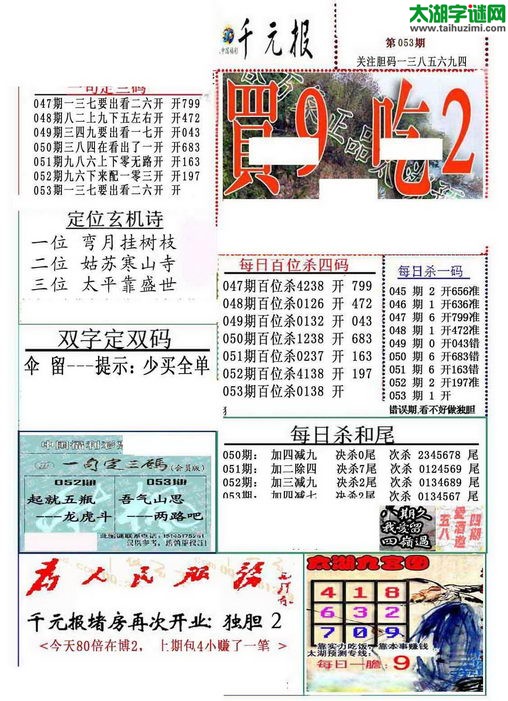 太湖字谜网
www.taihuzimi.com
中国福彩
千元报
第053期
关注胆码一三八五六九四
一句定三码
047期一三七要出看二六开 开799
048期八二上九下五左右开 开472
049期三四九要看一七一开 开043
050期三八四在看出了一开 开683
051期九八六上下零无路开 开163
052期九六下来配一零三开 开197
053期一三七要出看二六开 开
買9 吃2
正品太
定位玄机诗
一位 弯月挂树枝
二位 姑苏寒山寺
三位 太平靠盛世
每日百位杀四码
047期百位杀4238 开 799
048期百位杀0126 开 472
049期百位杀0132 开 043
050期百位杀1238 开 683
051期百位杀0237 开 163
052期百位杀4138 开 197
053期百位杀0138 开
每日杀一码
045 期 2 开656准
046 期 1 开636准
047 期 6 开799准
048 期 1 开472准
049 期 0 开043错
050 期 6 开683错
051 期 6 开163错
052 期 2 开197准
053 期 1 开
错误期,看不好做独胆
双字定双码
伞 留---提示: 少买全单
每日杀和尾
050期: 加四减九 决杀0尾 次杀 2345678 尾
051期: 加二除四 决杀7尾 次杀 0124569 尾
052期: 加三减九 决杀2尾 次杀 0134689 尾
053期: 加四减七 决杀2尾 次杀 0134567 尾
中国福利彩
一句定三碼(会员版)
052期
053期
起就五瓶
吾气山忍
---龙虎斗
---两路吧
仅供参考,
期久
我多留
四嶺過
五八
四期
为人民服务
千元报堵房再次开业: 独胆 2
<今天80倍在博2, 上期包4小赚了一笔 >
太湖九宫图
4 1 8
6 3 2
7 0 9
靠实力吃饭,靠本事赚钱
太湖预测专线:
每日一胆: 9